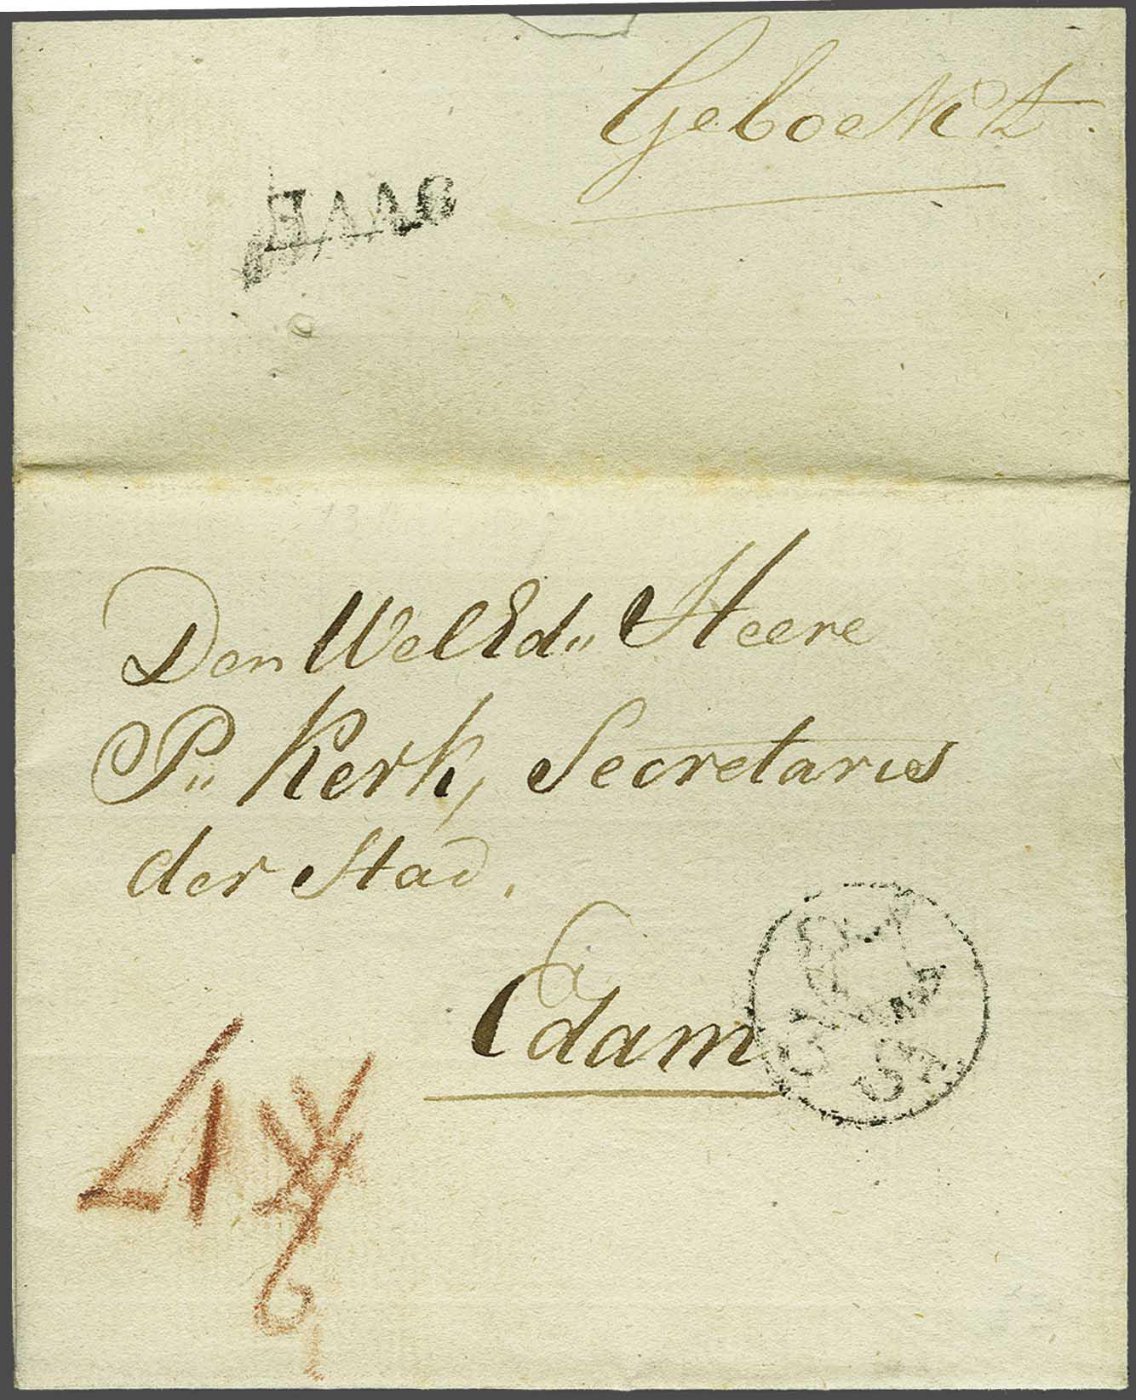 Geboekt
HAAG
Den WelEd„ Heere
P„ Kerk, Secretaris
der Stad.
Edam